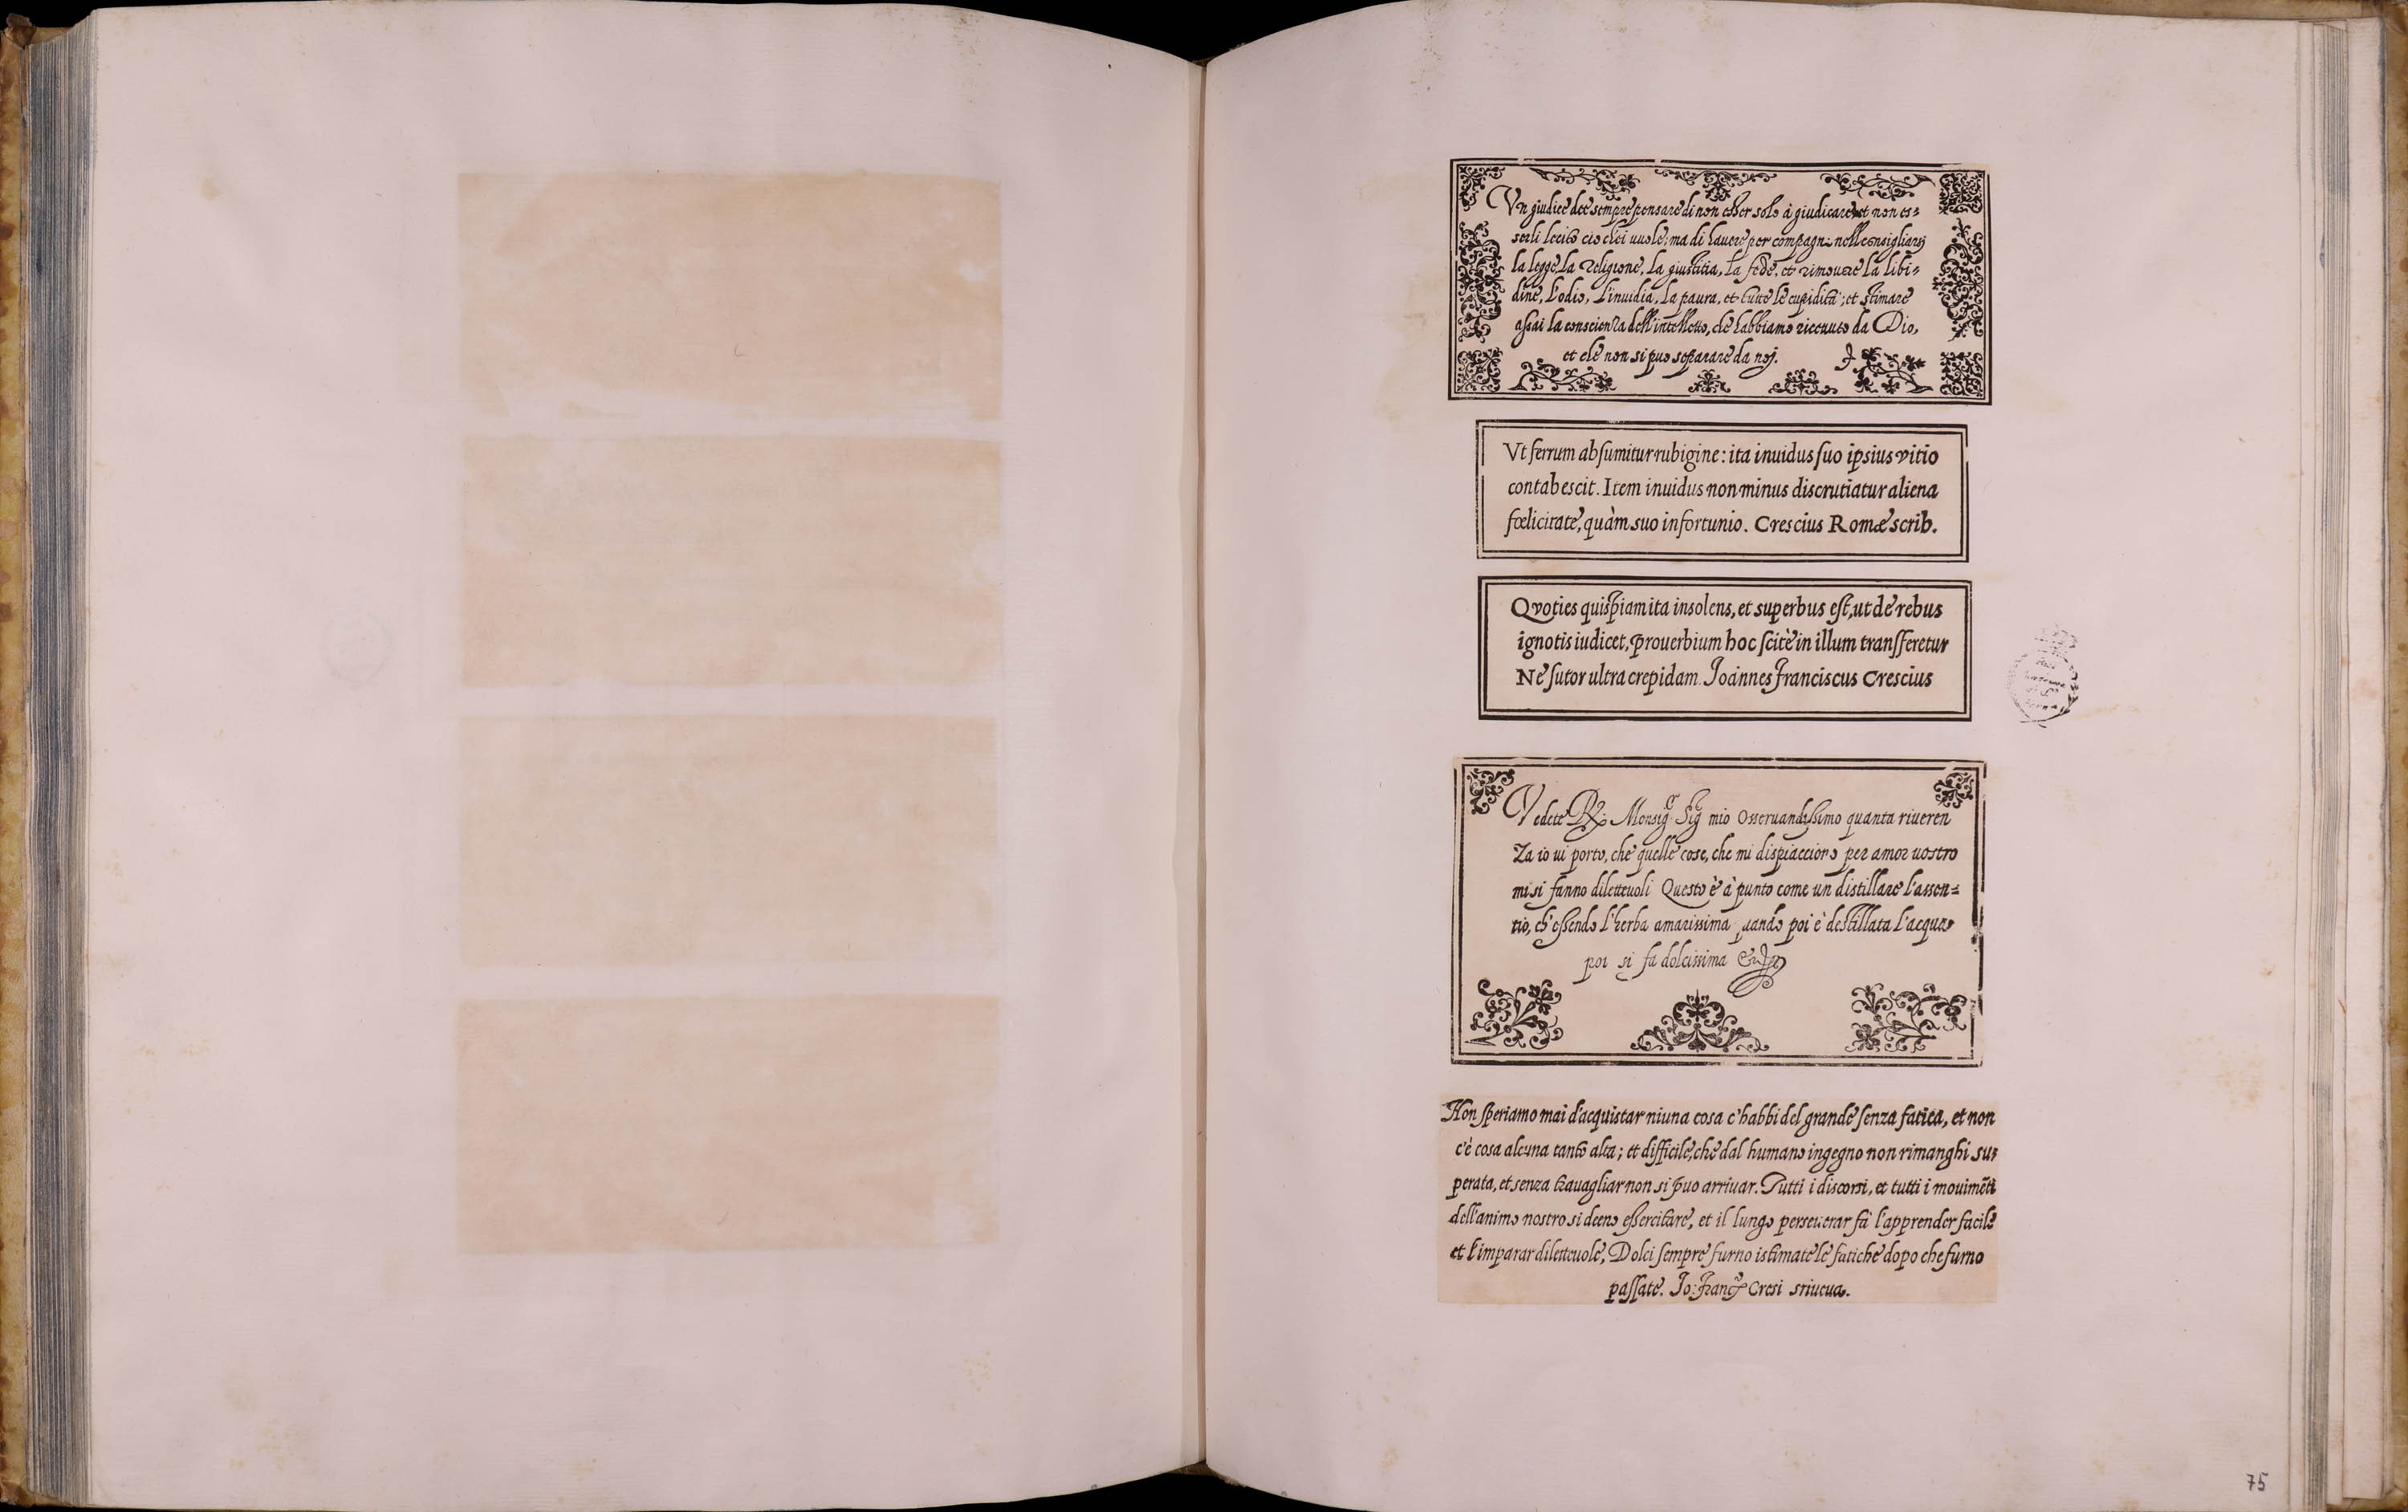 Vn giudice dee sempre pensare di non esser solo à giudicare, et non es=
serli lecito cio ch'ei uuole; ma di hauere per compagni nel consigliarsi
la legge, la religione, la giustitia, la fede, et rimouere la libi=
dine, l'odio, l'inuidia, la paura, et tutte le cupidita; et stimare
assai la conscienza dell'intelletto, che habbiamo riceuuto da Dio,
et che non si puo separare da noj.
Vt ferrum absumitur rubigine: ita inuidus suo ipsius vitio
contabescit. Item inuidus non minus discrutiatur aliena
fœlicitate, quàm suo infortunio. Crescius Romæ scrib.
Qvoties quispiam ita insolens, et superbus est, ut de rebus
ignotis iudicet, prouerbium hoc scitè in illum transferetur
Ne sutor ultra crepidam. Joannes Franciscus Crescius
Vedete Monsig.r Sig.r mio Osseruandissimo quanta riueren
za io ui porto, che quelle cose, che mi dispiacciono per amor uostro
mi si fanno diletteuoli Questo è à punto come un distillare l'assen=
tio, ch'essendo l'herba amarissima quando poi è destillata l'acqua
poi si fa dolcissima
Non speriamo mai d'acquistar niuna cosa c'habbi del grande senza fatica, et non
c'è cosa alcuna tanto alta; et difficile, che dal humano ingegno non rimanghi su=
perata, et senza trauagliar non si puo arriuar. Tutti i discorsi, et tutti i mouimẽti
dell'animo nostro si deeno essercitare, et il lungo perseuerar fà l'apprender facile
et l'imparar diletteuole, Dolci sempre furno istimate le fatiche dopo che furno
passate. Jo: Franc.o Cresi sriueua.
75